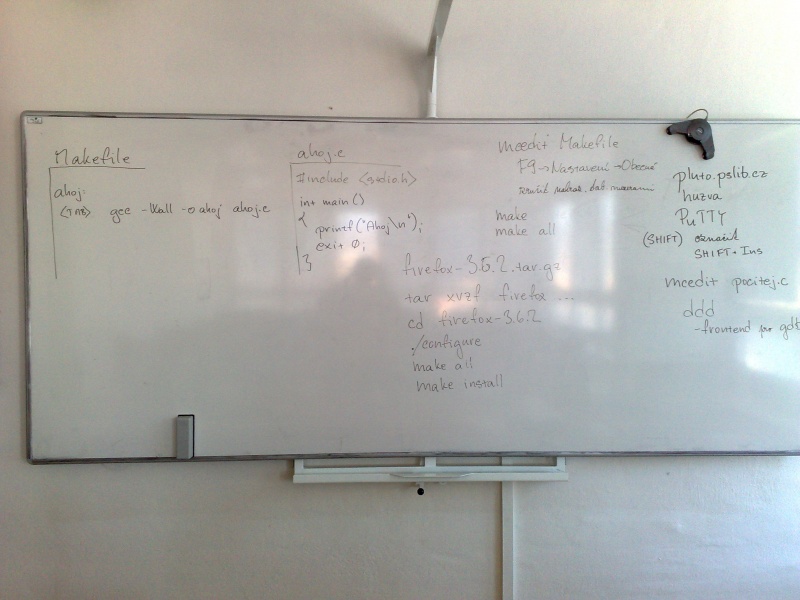 Makefile
ahoj:
<TAB> gcc -Wall -o ahoj ahoj.c
ahoj.c
#include <stdio.h>
int main()
{
printf("Ahoj\n");
exit 0;
}
mcedit Makefile
F9 → Nastavení → Obecné
make
make all
firefox-3.6.2.tar.gz
tar xvzf firefox ...
cd firefox-3.6.2
./configure
make all
make install
pluto.pslib.cz
huzva
PuTTY
(SHIFT) označit
SHIFT+Ins
mcedit pocitej.c
ddd
-frontend pro gdb